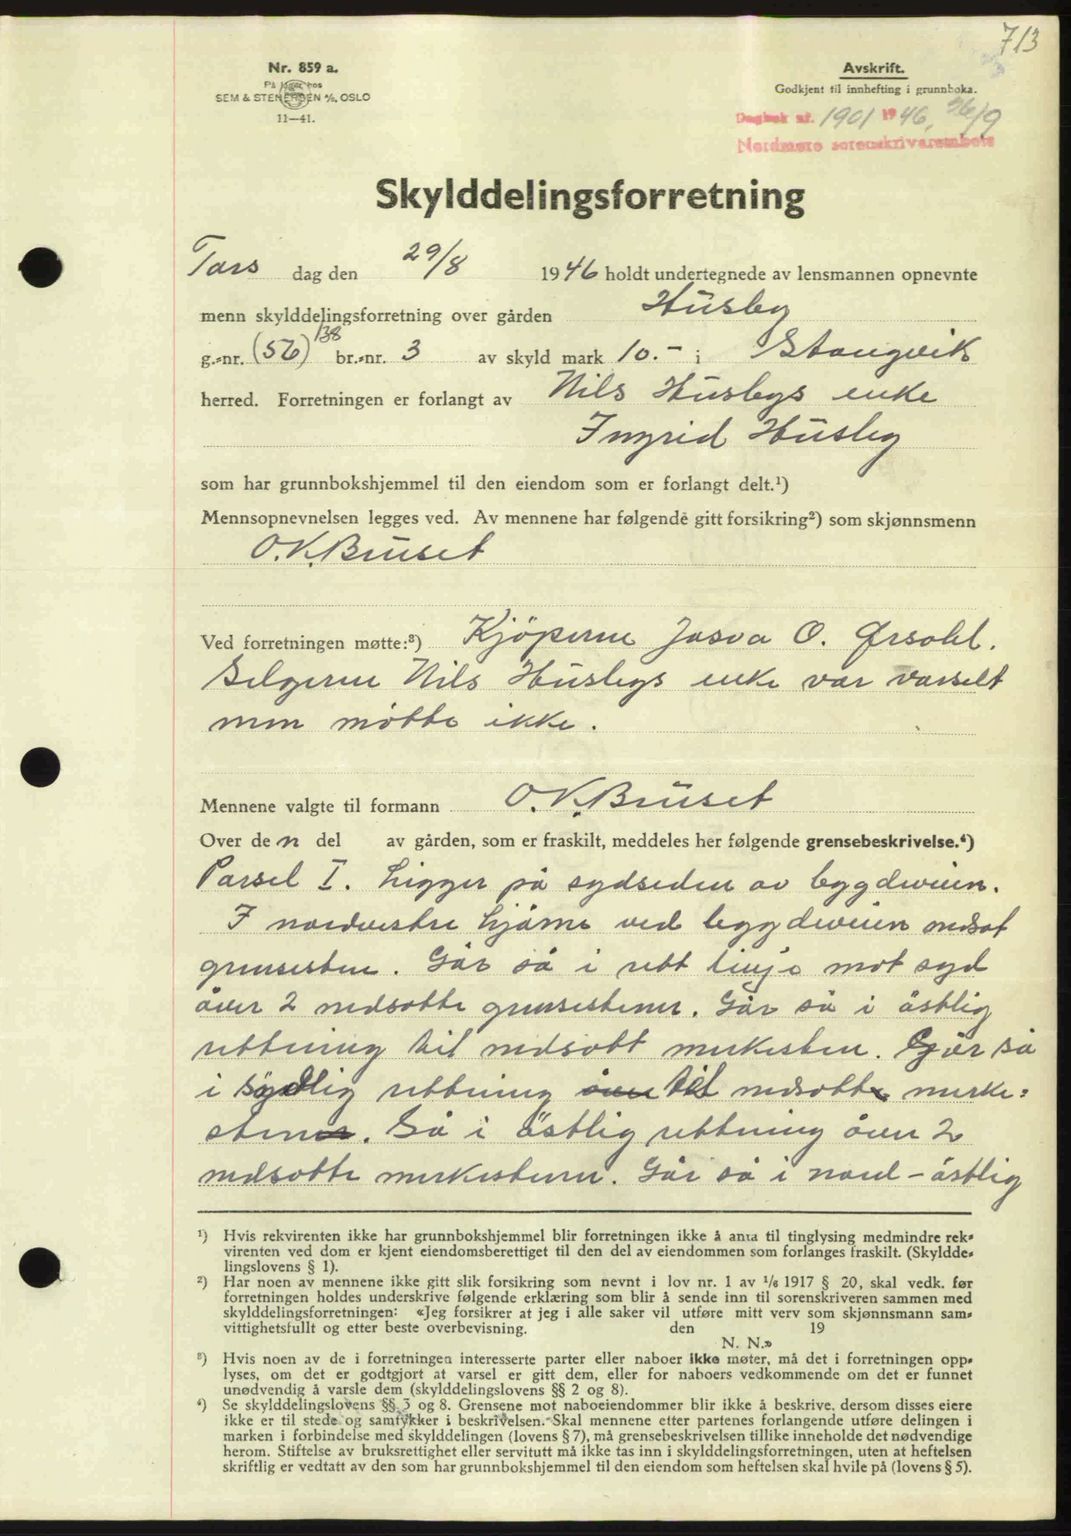 713
Nr. 859 a.
På lager hos
SEM & STENERSEN A/S, OSLO
11—41.
Avskrift.
Godkjent til innhefting i grunnboka.
Dagbok nr. 1901 1946, 26/9
Nordmøre sorenskriverembete
Skylddelingsforretning
Tors dag den 29/8 1946 holdt undertegnede av lensmannen opnevnte
menn skylddelingsforretning over gården Husby
g.-nr. (56) 138 br.-nr. 3 av skyld mark 10.- i Stangvik
herred. Forretningen er forlangt av Nils Husbys enke
Ingrid Husby
som har grunnbokshjemmel til den eiendom som er forlangt delt.¹)
Mennsopnevnelsen legges ved. Av mennene har følgende gitt forsikring²) som skjønnsmenn
O.K. Bruset
Ved forretningen møtte:³) Kjöperne O.
Selgerne Nils Husbys enke var varselt
men møtte ikke.
Mennene valgte til formann O.K. Bruset
Over den del av gården, som er fraskilt, meddeles her følgende grensebeskrivelse.⁴)
Parsel I. Ligger på sydsiden av bygdeveien.
I nordvestre hjørne ved bygdeveien nedsat
grensesten. Går så i rett linje mot syd
över 2 nedsatte grensestener. Går så i östlig
rettning til nedsatt merkesten. Går så
i sydlig rettning över til nedsatt merke-
stener. Så i östlig rettning över 2
nedsatte merkestener. Går så i nord-östlig
¹) Hvis rekvirenten ikke har grunnbokshjemmel blir forretningen ikke å anta til tinglysing medmindre rek-
virenten ved dom er kjent eiendomsberettiget til den del av eiendommen som forlanges fraskilt. (Skyldde-
lingslovens § 1).
²) Har noen av mennene ikke gitt slik forsikring som nevnt i lov nr. 1 av 1/6 1917 § 20, skal vedk. før
forretningen holdes underskrive følgende erklæring som blir å sende inn til sorenskriveren sammen med
skylddelingsforretningen: «Jeg forsikrer at jeg i alle saker vil utføre mitt verv som skjønnsmann sam-
vittighetsfullt og etter beste overbevisning. den 19
N. N.»
³) Hvis noen av de i forretningen interesserte parter eller naboer ikke møter, må det i forretningen opp-
lyses, om det er godtgjort at varsel er gitt dem, eller for naboers vedkommende om det er funnet
unødvendig å varsle dem (skylddelingslovens §§ 2 og 8).
⁴) Se skylddelingslovens §§ 3 og 8. Grensene mot naboeiendommer blir ikke å beskrive, dersom disses eiere
ikke er til stede og samtykker i beskrivelsen. Skal mennene etter partenes forlangende utføre delingen i
marken i forbindelse med skylddelingen (lovens § 7), må grensebeskrivelsen tillike inneholde det nødvendige
herom. Stiftelse av bruksrettighet eller servitutt må ikke tas inn i skylddelingsforretningen, uten at heftelsen
skriftlig er vedtatt av den som har grunnbokshjemmel til den eiendom som heftelsen skal hvile på (lovens § 5).